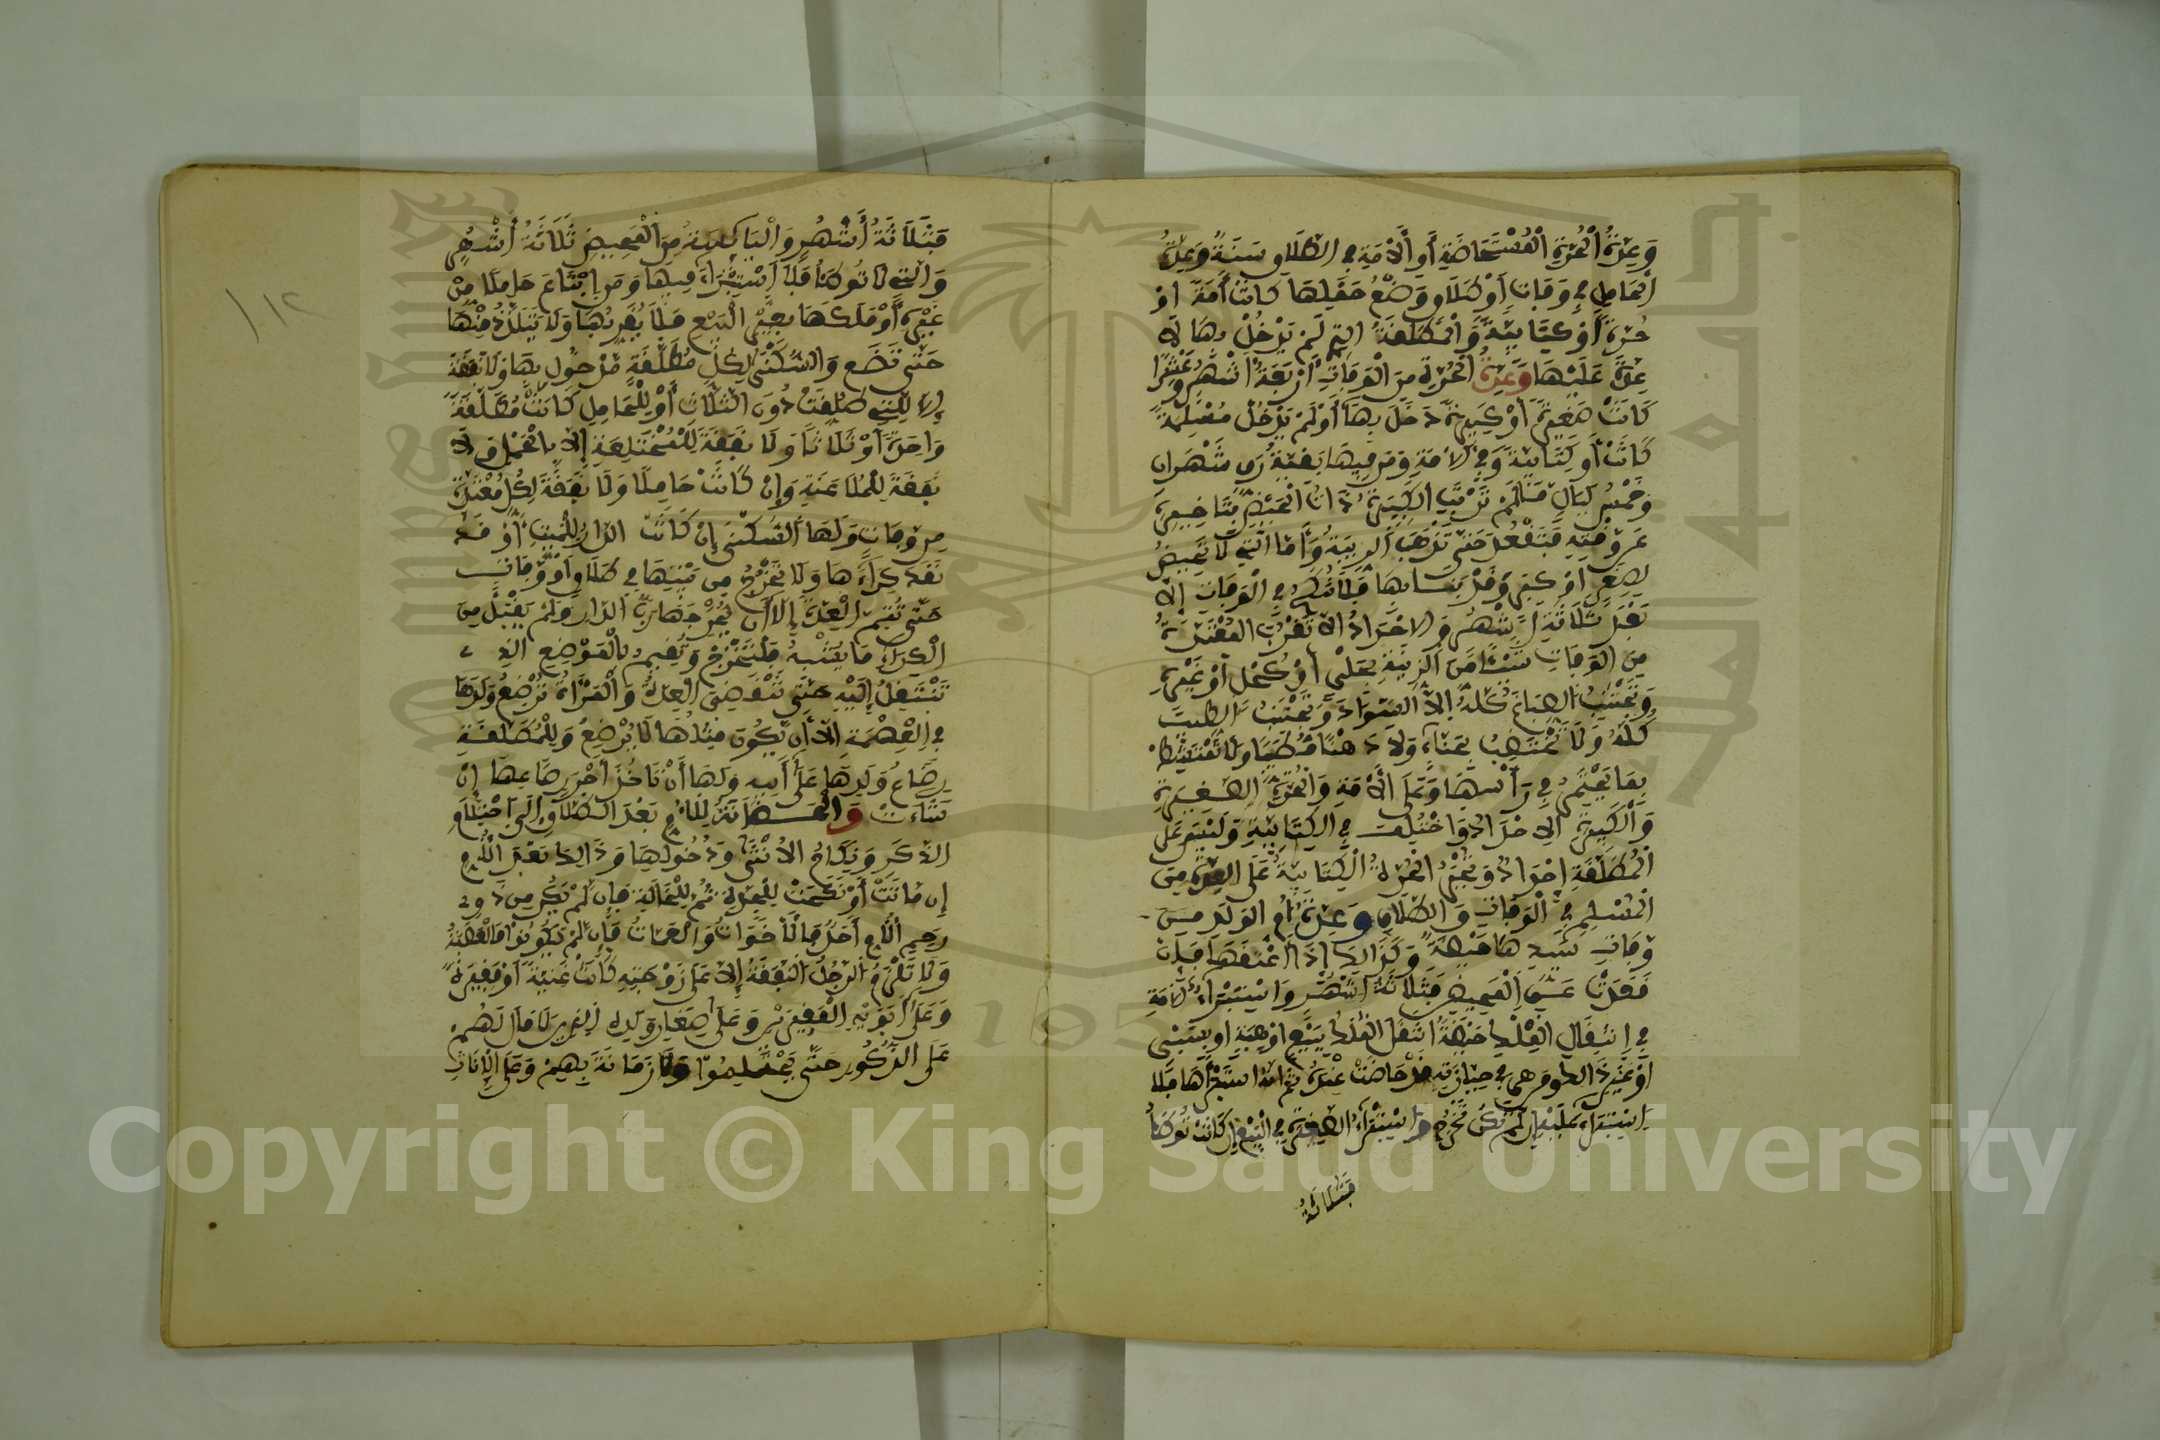 وَعِدَّةُ الْحُرَّةِ الْمُسْتَحَاضَةِ أَوِ الْأَمَةِ فِي الطَّلَاقِ سَنَةٌ وَعِدَّةُ
الْحَامِلِ فِي وَفَاتٍ أَوْ طَلَاقٍ وَضْعُ حَمْلِهَا كَانَتْ أَمَةً أَوْ
حُرَّةً أَوْ كِتَابِيَّةً وَالْمُطَلَّقَةُ الَّتِي لَمْ يَدْخُلْ بِهَا لَا
عِدَّةَ عَلَيْهَا وَعِدَّةُ الْحُرَّةِ مِنَ الْوَفَاتِ أَرْبَعَةُ أَشْهُرٍ وَعَشْرًا
كَانَتْ صَغِيرَةً أَوْ كَبِيرَةً دَخَلَ بِهَا أَوْ لَمْ يَدْخُلْ مُسْلِمَةً
كَانَتْ أَوْ كِتَابِيَّةً وَفِي الْأَمَةِ وَمَنْ فِيهَا بَقِيَّةُ رِقٍّ شَهْرَانِ
وَخَمْسُ لَيَالٍ مَا لَمْ تَرْتَبِ الْكَبِيرَةُ ذَاتُ الْحَيْضِ بِتَاخِيرِهِ
عَنْ وَقْتِهِ فَتَقْعُدُ حَتَّى تَذْهَبَ الرِّيبَةُ وَأَمَّا الَّتِي لَا تَحِيضُ
لِصِغَرٍ أَوْ كِبَرٍ وَقَدْ بَنَى بِهَا فَلَا تُنْكَحُ فِي الْوَفَاتِ إِلَّا
بَعْدَ ثَلَاثَةِ أَشْهُرٍ وَالْإِحْدَادُ أَلَّا تَقْرُبَ الْمُعْتَدَّةُ
مِنَ الْوَفَاتِ شَيْئًا مِنَ الزِّينَةِ بِحَلْيٍ أَوْ كُحْلٍ أَوْ غَيْرِهِ
وَتَجْتَنِبُ الصِّبَاغَ كُلَّهُ إِلَّا السَّوَادَ وَتَجْتَنِبُ الطِّيبَ
كُلَّهُ وَلَا تَخْتَضِبُ بِحِنَّاءٍ وَلَا دَهْنًا مُطَيَّبًا وَلَا تَمْتَشِطُ
بِمَا يَخْتَمِرُ فِي رَأْسِهَا وَعَلَى الْأَمَةِ وَالْحُرَّةِ الصَّغِيرَةِ
وَالْكَبِيرَةِ الْإِحْدَادُ وَاخْتُلِفَ فِي الْكِتَابِيَّةِ وَلَيْسَ عَلَى
الْمُطَلَّقَةِ إِحْدَادٌ وَتُجْبَرُ الْحُرَّةُ الْكِتَابِيَّةُ عَلَى الْعِدَّةِ مِنَ
الْمُسْلِمِ فِي الْوَفَاتِ وَالطَّلَاقِ وَعِدَّةُ أُمِّ الْوَلَدِ مِنْ
وَفَاتِ سَيِّدِهَا حَيْضَةٌ وَكَذَالِكَ إِذَا أَعْتَقَهَا فَإِنْ
قَعَدَتْ عَنِ الْمَحِيضِ فَثَلَاثَةُ أَشْهُرٍ وَاسْتِبْرَاءُ الْأَمَةِ
فِي انْتِقَالِ الْمِلْكِ حَيْضَةٌ انْتَقَلَ الْمِلْكُ بِبَيْعٍ أَوْ هِبَةٍ أَوْ بِسَبْيٍ
أَوْ غَيْرِ ذَالِكَ وَمَنْ هِيَ فِي حِيَازَتِهِ قَدْ حَاضَتْ عِنْدَهُ ثُمَّ إِنَّهُ اشْتَرَاهَا فَلَا
اسْتِبْرَاءَ عَلَيْهَا إِنْ لَمْ تَكُنْ تَخْرُجُ وَاسْتِبْرَاءُ الصَّغِيرَةِ فِي الْبَيْعِ إِنْ كَانَتْ تُوطَأُ
فَثَلَاثَةُ
١١٢
فَثَلَاثَةُ أَشْهُرٍ وَالْيَائِسَةُ مِنَ الْمَحِيضِ ثَلَاثَةُ أَشْهُرٍ
وَالَّتِي لَا تُوطَأُ فَلَا اسْتِبْرَاءَ فِيهَا وَمَنِ ابْتَاعَ حَامِلًا مِنْ
غَيْرِهِ أَوْ مَلَكَهَا بِغَيْرِ الْبَيْعِ فَلَا يَقْرَبُهَا وَلَا يَتَلَذَّذُ مِنْهَا
حَتَّى تَضَعَ وَالسُّكْنَى لِكُلِّ مُطَلَّقَةٍ مَدْخُولٍ بِهَا وَلَا نَفَقَةَ
إِلَّا لِلَّتِي طُلِّقَتْ دُونَ الثَّلَاثِ أَوْ لِلْحَامِلِ كَانَتْ مُطَلَّقَةً
وَاحِدَةً أَوْ ثَلَاثًا وَلَا نَفَقَةَ لِلْمُخْتَلِعَةِ إِلَّا بِالْحَمْلِ وَلَا
نَفَقَةَ لِلْمُلَاعَنَةِ وَإِنْ كَانَتْ حَامِلًا وَلَا نَفَقَةَ لِكُلِّ مُعْتَدَّةٍ
مِنْ وَفَاتٍ وَلَهَا السُّكْنَى إِنْ كَانَتِ الدَّارُ لِلْمَيِّتِ أَوْ قَدْ
نَقَدَ كِرَاءَهَا وَلَا تَخْرُجُ مِنْ بَيْتِهَا فِي طَلَاقٍ أَوْ وَفَاتٍ
حَتَّى تُتِمَّ الْعِدَّةَ إِلَّا أَنْ يُخْرِجَهَا رَبُّ الدَّارِ وَلَمْ يَقْبَلْ مِنَ
الْكِرَاءِ مَا يُشْبِهُ فَلْتَخْرُجْ وَتُقِيمُ بِالْمَوْضِعِ الَّذِي
تَنْتَقِلُ إِلَيْهِ حَتَّى تَنْقَضِيَ الْعِدَّةُ وَالْمَرْأَةُ تُرْضِعُ وَلَدَهَا
فِي الْعِصْمَةِ إِلَّا أَنْ يَكُونَ مِثْلُهَا لَا يُرْضِعُ وَلِلْمُطَلَّقَةِ
رِضَاعُ وَلَدِهَا عَلَى أَبِيهِ وَلَهَا أَنْ تَاخُذَ أَجْرَ رِضَاعِهَا إِنْ
شَاءَتْ وَالْحَضَانَةُ لِلْأُمِّ بَعْدَ الطَّلَاقِ إِلَى احْتِلَامِ
الذَّكَرِ وَنِكَاحِ الْأُنْثَى وَدُخُولِهَا وَذَالِكَ بَعْدَ الْأُمِّ
إِنْ مَاتَتْ أَوْ نَكَحَتْ لِلْجَدَّةِ ثُمَّ لِلْخَالَةِ فَإِنْ لَمْ يَكُنْ مِنْ ذَوِي
رَحِمِ الْأُمِّ أَحَدٌ فَالْأَخَوَاتُ وَالْعَمَّاتُ فَإِنْ لَمْ يَكُونُوا فَالْعَصَبَةُ
وَلَا يَلْزَمُ الرَّجُلَ النَّفَقَةُ إِلَّا عَلَى زَوْجَتِهِ كَانَتْ غَنِيَّةً أَوْ فَقِيرَةً
وَعَلَى أَبَوَيْهِ الْفَقِيرَيْنِ وَعَلَى صِغَارِ وَلَدِهِ الَّذِينَ لَا مَالَ لَهُمْ
عَلَى الذُّكُورِ حَتَّى يَحْتَلِمُوا وَلَا زَمَانَةَ بِهِمْ وَعَلَى الْإِنَاثِ
Copyright © King Saud University
1957